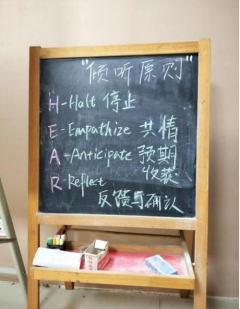 "倾听原则"
H-Halt 停止
E-Empathize 共情
A-Anticipate 预期
收获
R-Reflect
反馈与确认